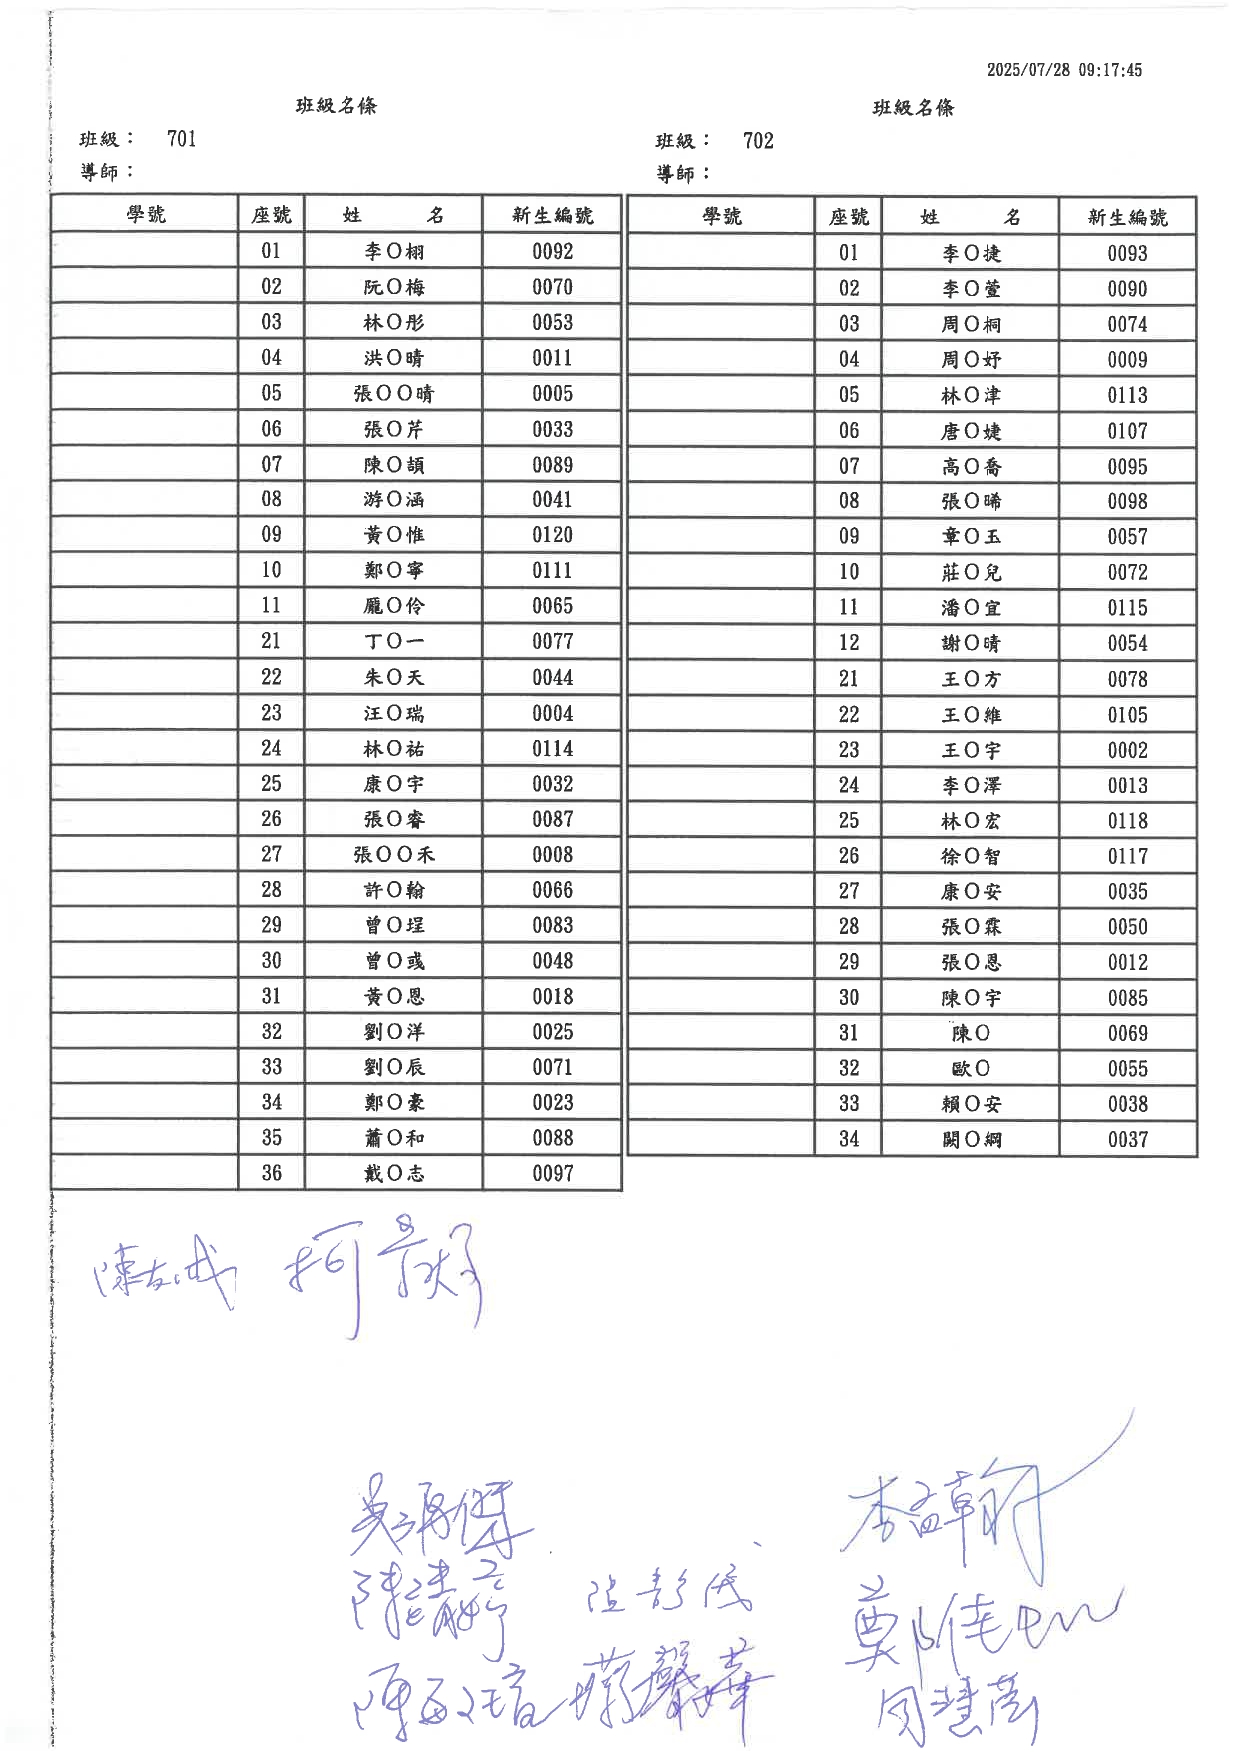 2025/07/28 09:17:45
班級名條
班級： 701
導師：
學號 座號 姓 名 新生編號
01 李O栩 0092
02 阮O梅 0070
03 林O彤 0053
04 洪O晴 0011
05 張OO晴 0005
06 張O芹 0033
07 陳O頡 0089
08 游O涵 0041
09 黃O惟 0120
10 鄭O寧 0111
11 龐O伶 0065
21 丁O一 0077
22 朱O天 0044
23 汪O瑞 0004
24 林O祐 0114
25 康O宇 0032
26 張O睿 0087
27 張OO禾 0008
28 許O翰 0066
29 曾O埕 0083
30 曾O彧 0048
31 黃O恩 0018
32 劉O洋 0025
33 劉O辰 0071
34 鄭O豪 0023
35 蕭O和 0088
36 戴O志 0097
班級名條
班級： 702
導師：
學號 座號 姓 名 新生編號
01 李O捷 0093
02 李O萱 0090
03 周O桐 0074
04 周O妤 0009
05 林O津 0113
06 唐O婕 0107
07 高O喬 0095
08 張O晞 0098
09 章O玉 0057
10 莊O兒 0072
11 潘O宜 0115
12 謝O晴 0054
21 王O方 0078
22 王O維 0105
23 王O宇 0002
24 李O澤 0013
25 林O宏 0118
26 徐O智 0117
27 康O安 0035
28 張O霖 0050
29 張O恩 0012
30 陳O宇 0085
31 陳O 0069
32 歐O 0055
33 賴O安 0038
34 闕O綱 0037